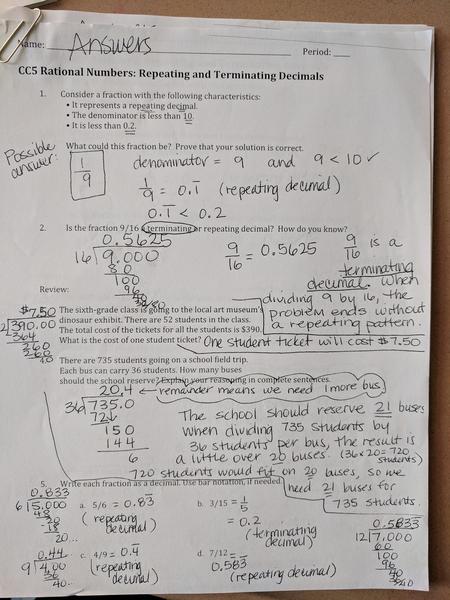 Name: Answers Period:
CC5 Rational Numbers: Repeating and Terminating Decimals
1. Consider a fraction with the following characteristics:
• It represents a repeating decimal.
• The denominator is less than 10.
• It is less than 0.2.
What could this fraction be? Prove that your solution is correct.
Possible answer:
1/9
denominator = 9 and 9 < 10 ✓
1/9 = 0.1̅ (repeating decimal)
0.1̅ < 0.2
2. Is the fraction 9/16 a terminating or repeating decimal? How do you know?
0.5625
16 9.000
80
100
96
40
32
80
9/16 = 0.5625
9/16 is a
terminating
decimal. When
dividing 9 by 16, the
problem ends without
a repeating pattern.
Review:
The sixth-grade class is going to the local art museum's
dinosaur exhibit. There are 52 students in the class.
The total cost of the tickets for all the students is $390.
What is the cost of one student ticket? One student ticket will cost $7.50
$7.50
52 390.00
364
260
260
There are 735 students going on a school field trip.
Each bus can carry 36 students. How many buses
should the school reserve? Explain your reasoning in complete sentences.
20.4 ← remainder means we need 1 more bus.
36 735.0
72↓
150
144
6
The school should reserve 21 buses
when dividing 735 students by
36 students per bus, the result is
a little over 20 buses. (36×20=720 students)
720 students would fit on 20 buses, so we
need 21 buses for
735 students.
5. Write each fraction as a decimal. Use bar notation, if needed
0.833
6 5.000
48
20
18
20...
a. 5/6 = 0.83̅
(repeating
decimal)
b. 3/15 = 1/5
= 0.2
(terminating
decimal)
0.44..
9 4.00
36
40..
c. 4/9 = 0.4̅
(repeating
decimal)
d. 7/12 =
0.583̅
(repeating decimal)
0.5833
12 7.000
60
100
96
40
36
40